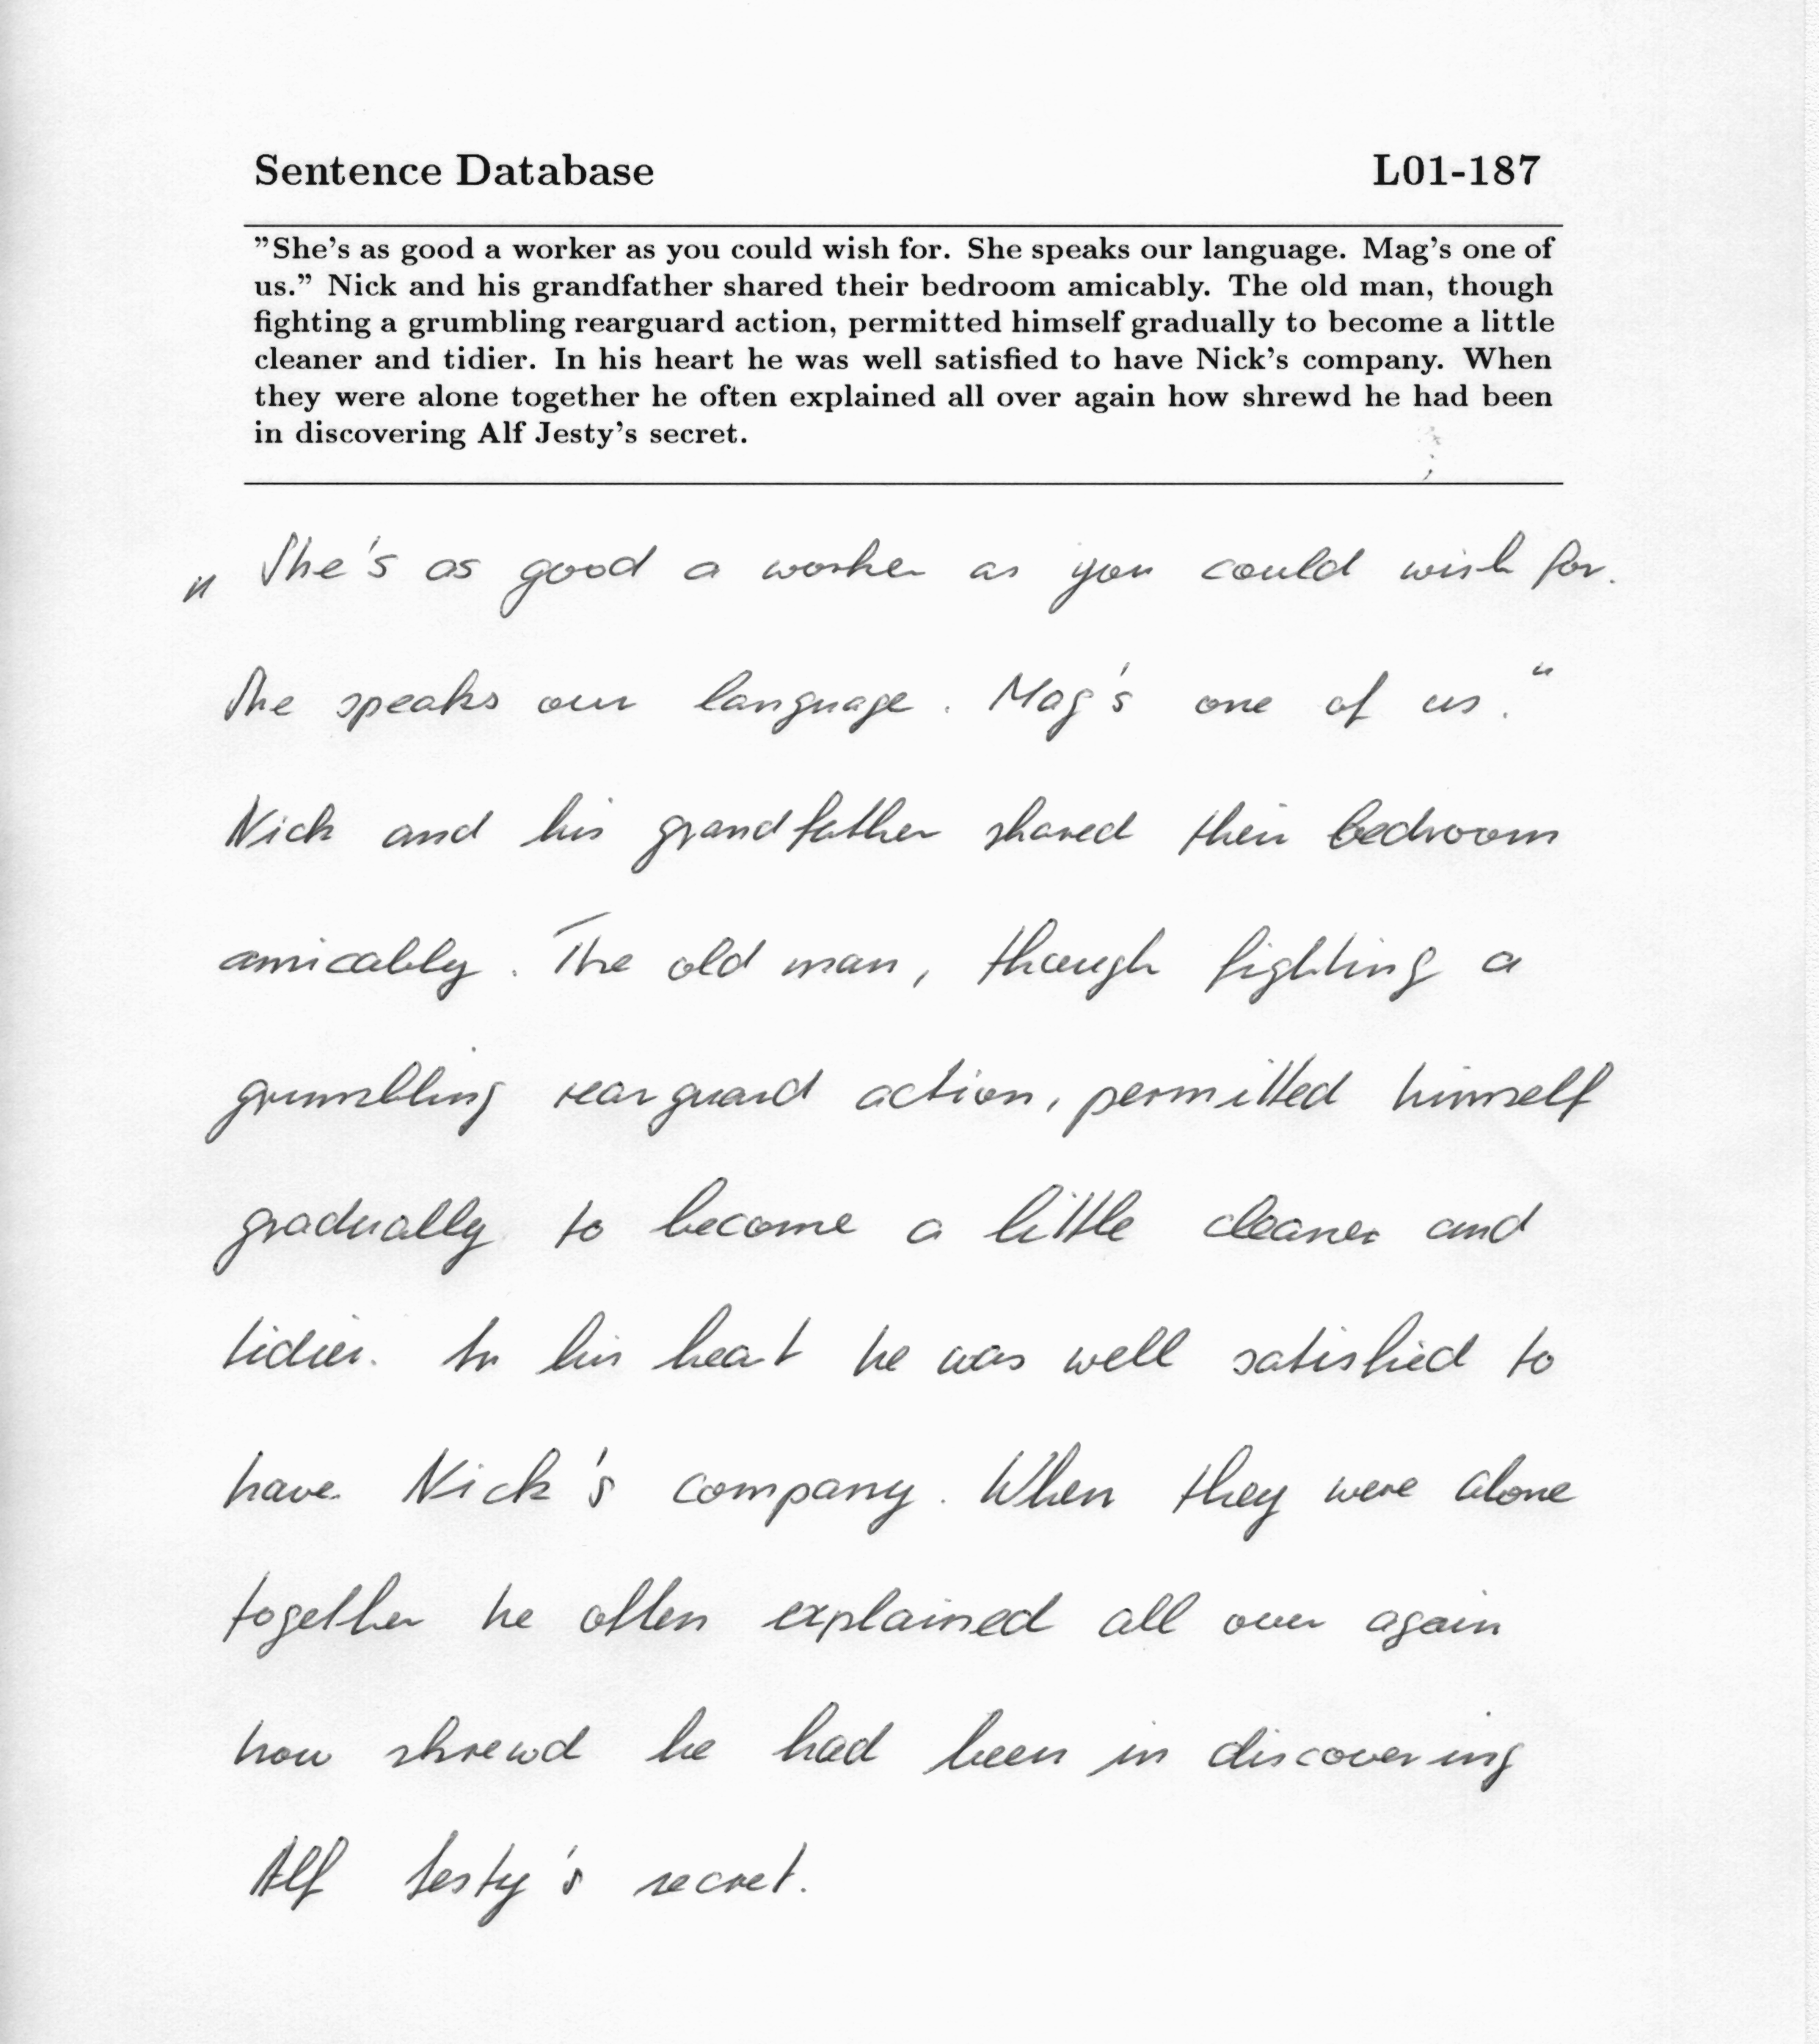 Sentence Database L01-187
"She's as good a worker as you could wish for. She speaks our language. Mag's one of
us." Nick and his grandfather shared their bedroom amicably. The old man, though
fighting a grumbling rearguard action, permitted himself gradually to become a little
cleaner and tidier. In his heart he was well satisfied to have Nick's company. When
they were alone together he often explained all over again how shrewd he had been
in discovering Alf Jesty's secret.
„ She's as good a worker as you could wish for.
She speaks our language. Mag's one of us."
Nick and his grandfather shared their bedroom
amicably. The old man, though fighting a
grumbling rearguard action, permitted himself
gradually to become a little cleaner and
tidier. In his heart he was well satisfied to
have Nick's company. When they were alone
together he often explained all over again
how shrewd he had been in discovering
Alf Jesty's secret.